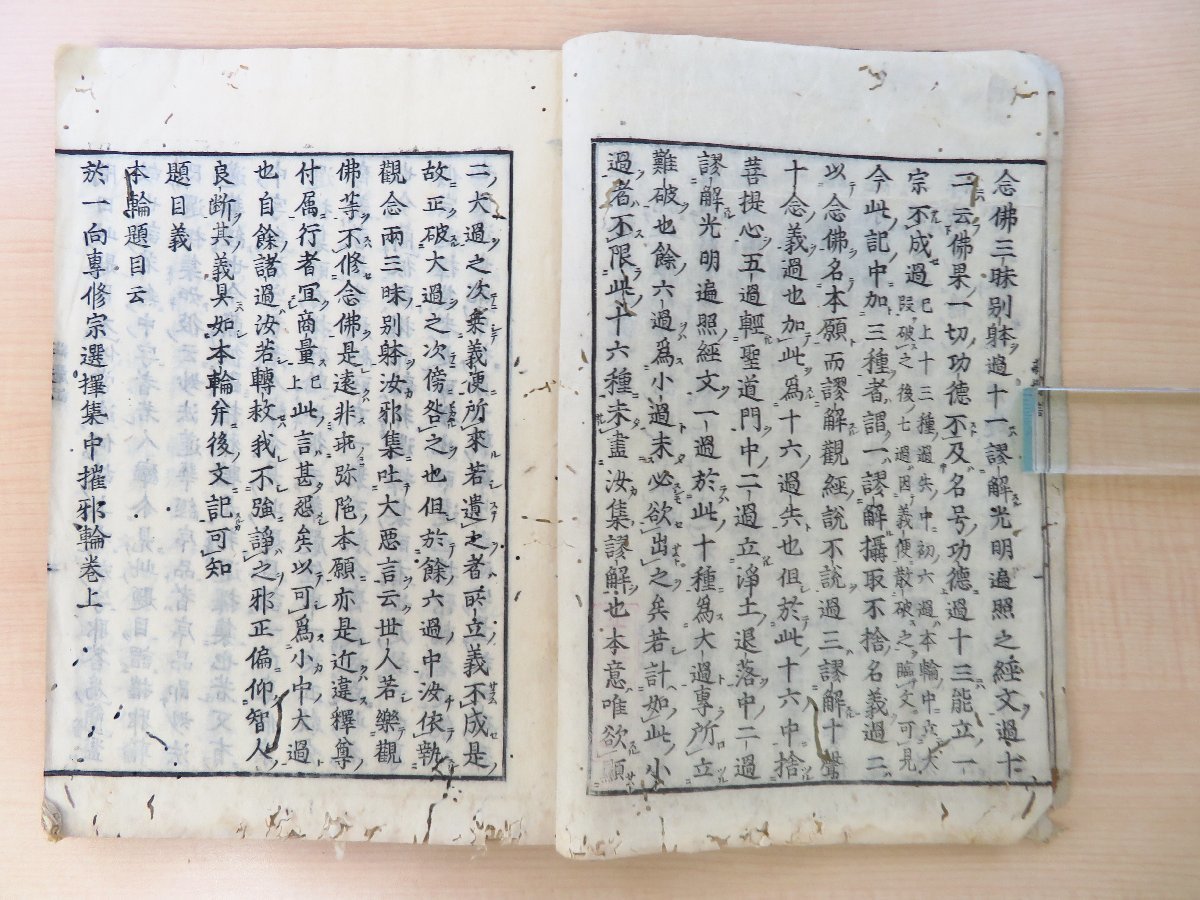 念佛三昧别躰過十一謬解光明遍照之經文過十
二云佛果一切功德不及名号功德過十三能立一
宗不成過 已上十三種過失中初六過本輪中立大
段破之後七過因義便散破之臨文可見
今此記中加三種者謂一謬解攝取不捨名義過二
以念佛名本願而謬解觀經說不說過三謬解十聲
十念義過也加此爲十六過失也但於此十六中捨
菩提心五過輕聖道門中二過立淨土退落中二過
謬解光明遍照經文一過於此十種爲大過專所立
難破也餘六過爲小過未必欲出之矣若計如此小
過者不限此十六種未盡汝集謬解也本意唯欲顯
二大過之次乗義便所來若遺之者所立義不成是
故正破大過之次傍咎之也但於餘六過中汝依執
觀念兩三昧别躰汝邪集吐大悪言云世人若樂觀
佛等不修念佛是遠非珁弥陁本願亦是近違釋尊
付属行者冝商量已上此言甚惡矣以可爲小中大過
也自餘諸過汝若轉救我不強諍之邪正偏仰智人
良断其義具如本輪并後文記可知
題目義
本輪題目云
於一向專修宗選擇集中摧邪輪卷上